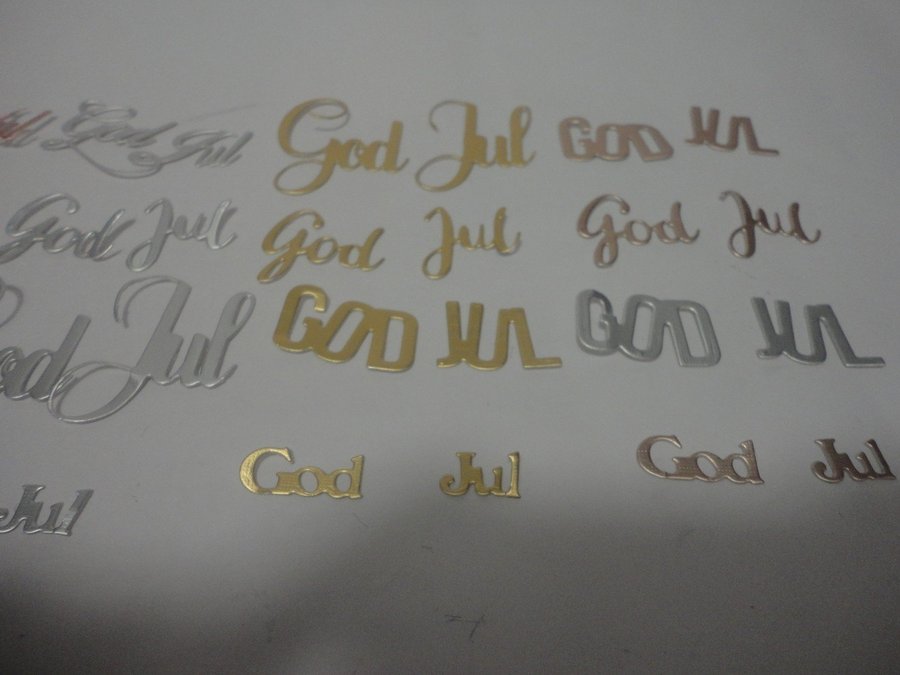 God Jul God Jul GOD JUL
God Jul God Jul God Jul
God Jul GOD JUL GOD JUL
Jul God Jul God Jul